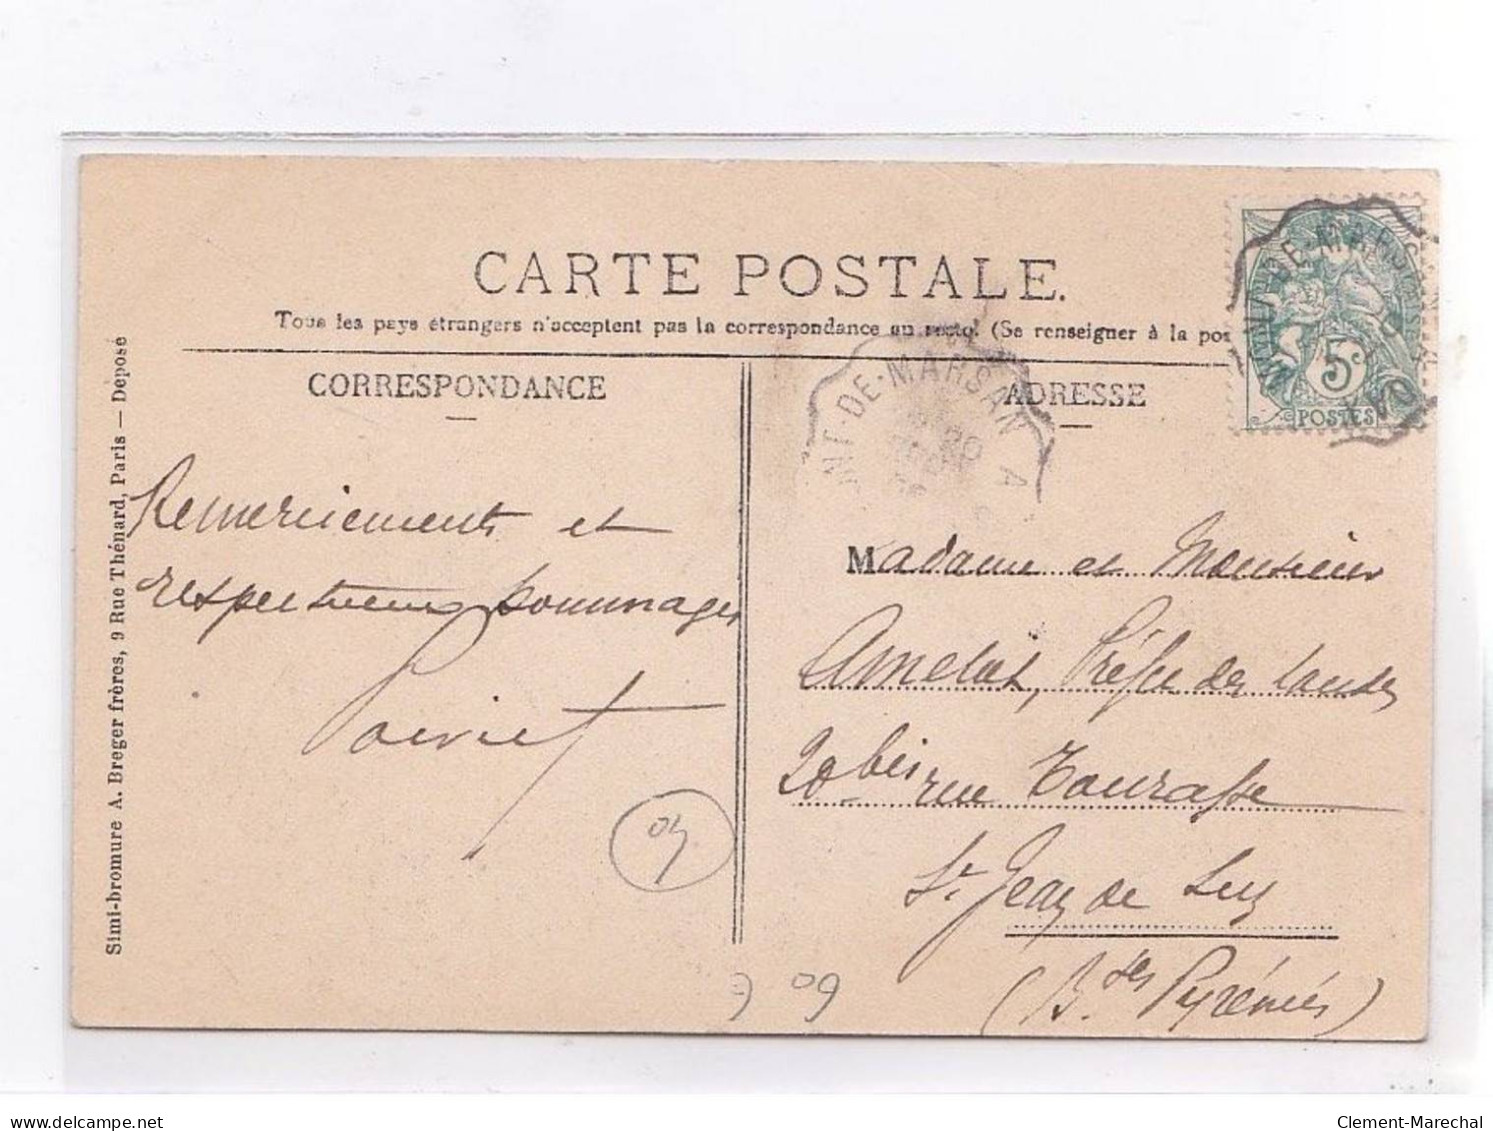 CARTE POSTALE.
Tous les pays étrangers n'acceptent pas la correspondance au recto. (Se renseigner à la pos
CORRESPONDANCE
ADRESSE
Simi-bromure A. Breger frères, 9 Rue Thénard, Paris — Déposé
MT-DE-MARSAN A
20
DE-MARSAN
DAX
5c
POSTES
Remerciements et
respectueux hommages
Poiriet
Madame et Monsieur
Amelot, Préfet des Landes
20 bis rue Tourasse
St Jean de Luz
(Bses Pyrénées)
04
60 09
delcampe.net
Clement-Marechal